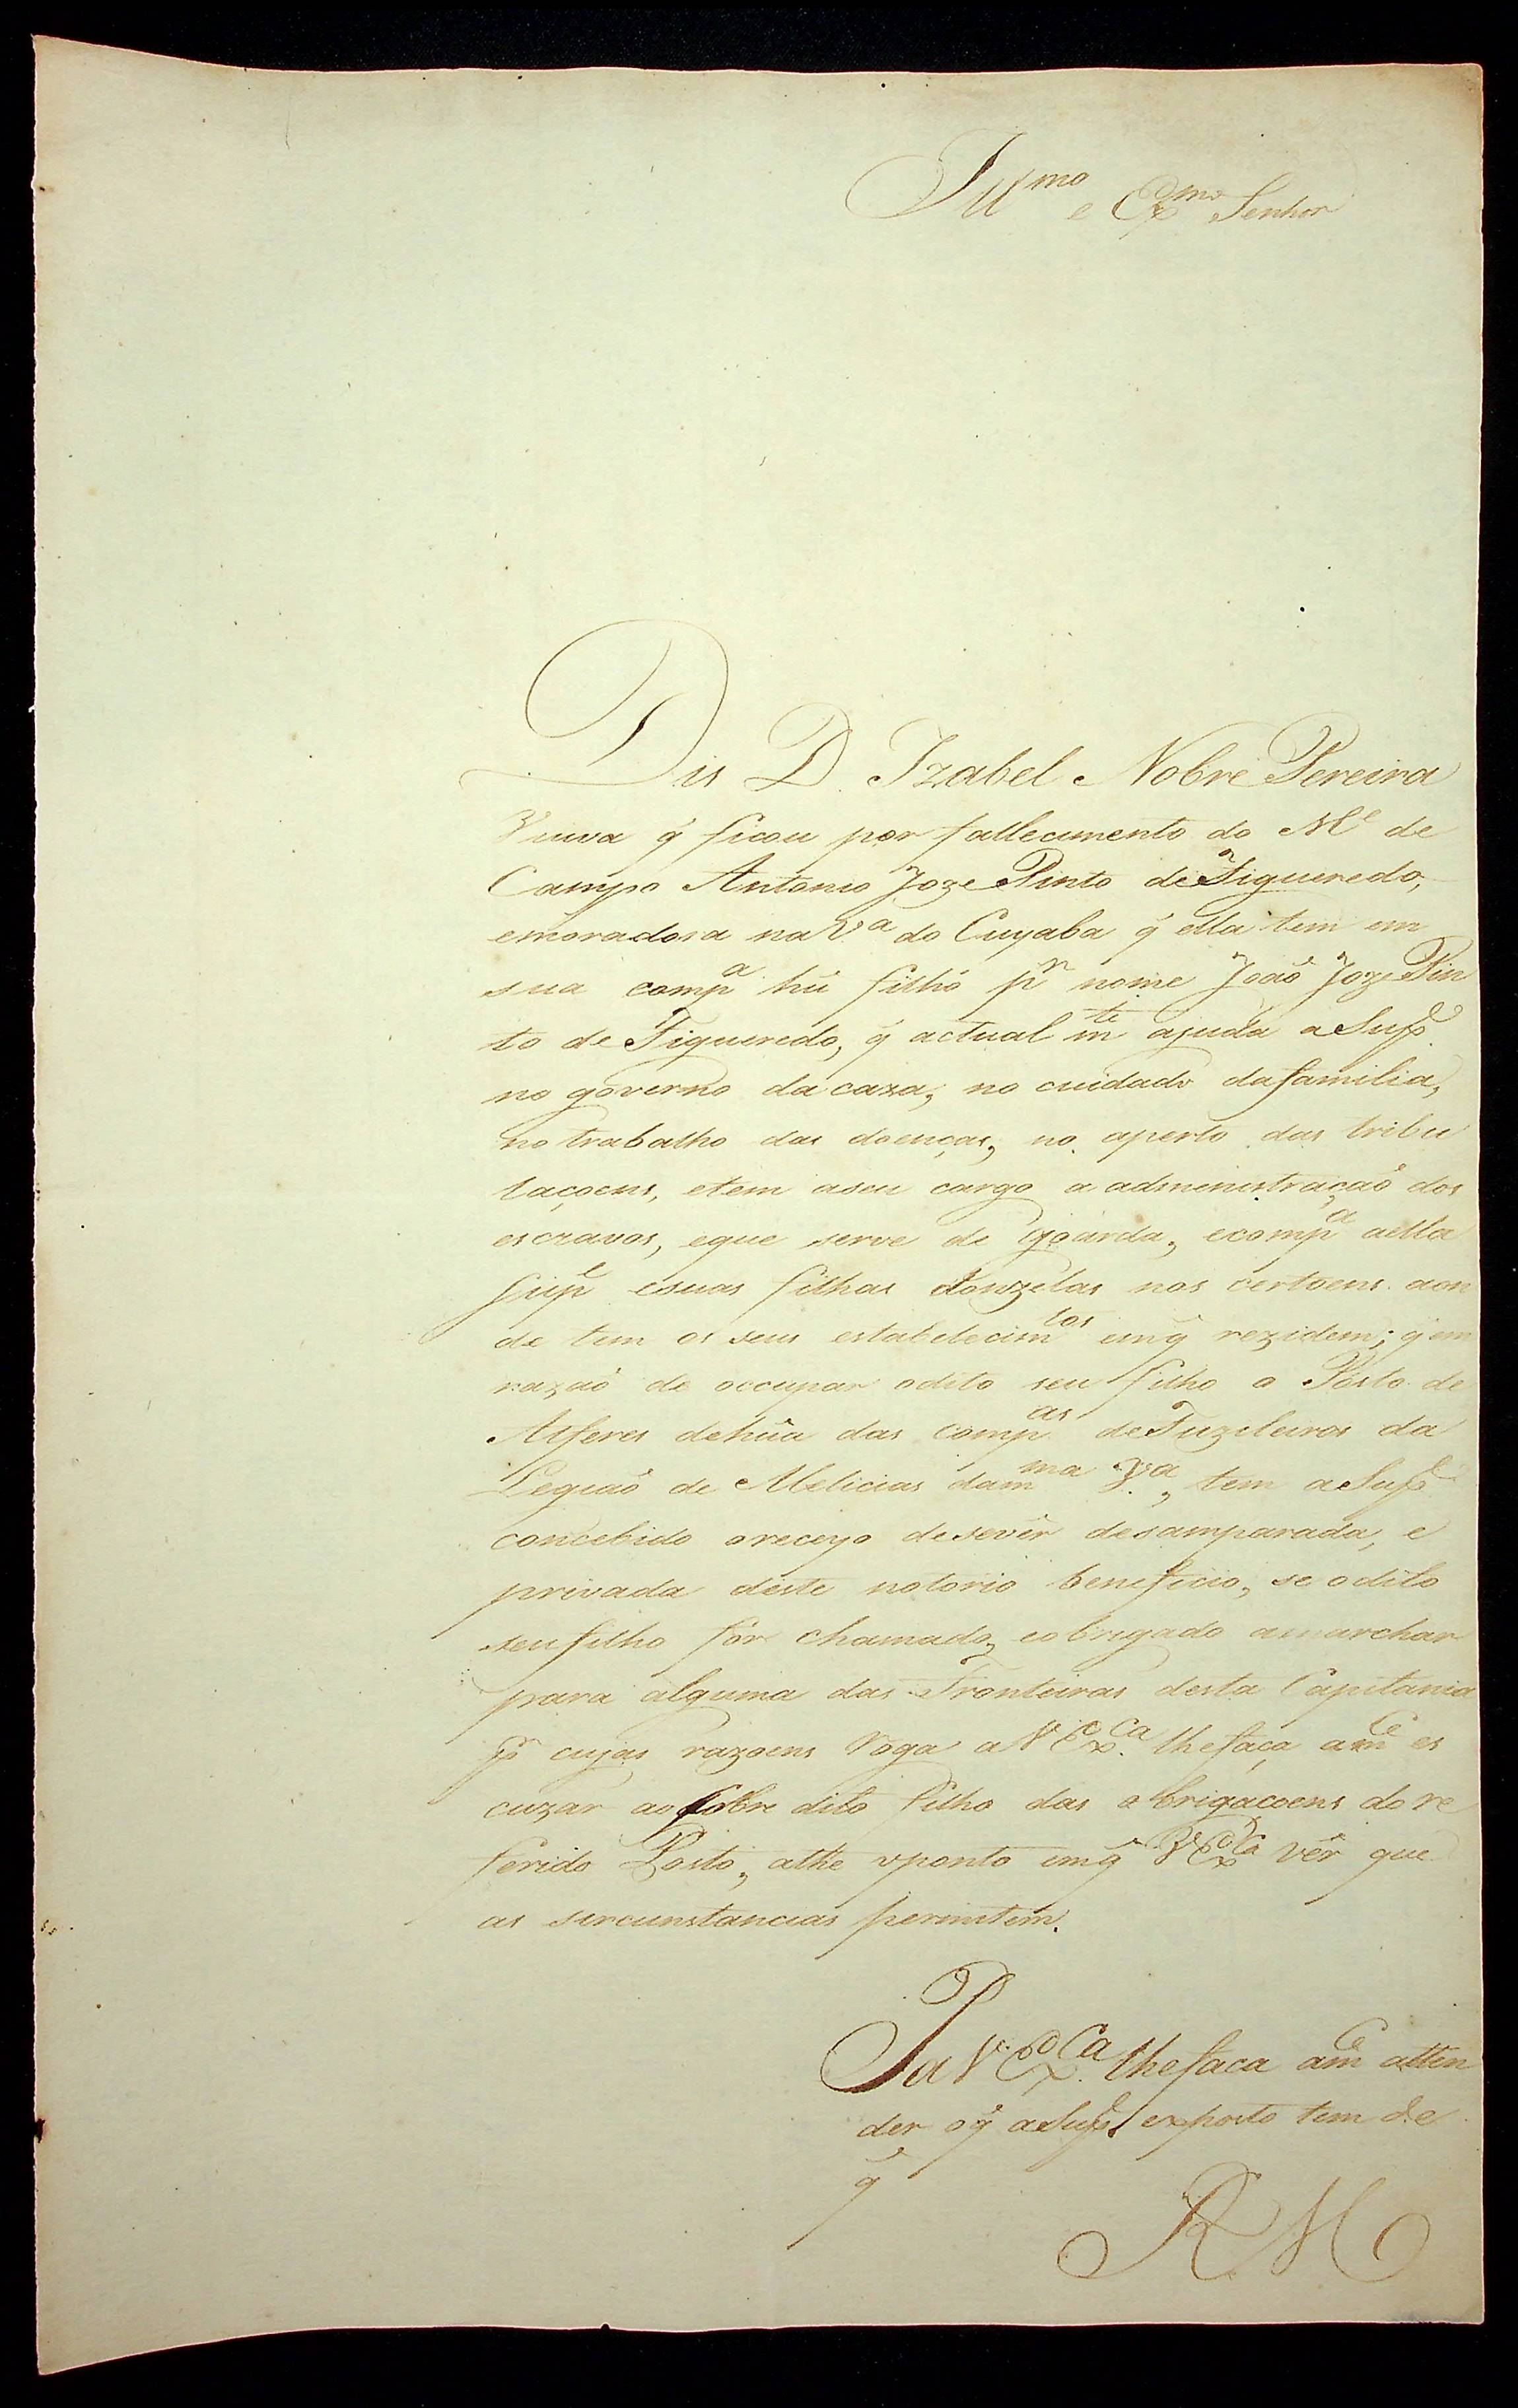 Ill.mo e Ex.mo Senhor
Dis D. Izabel Nobre Pereira
Viuva q̃ ficou por fallecimento do M.e de
Campo Antonio Joze Pinto de Figueredo,
emoradora na V.a do Cuyaba q̃ ella tem em
sua comp.a hũ filho p.r nome João Joze Pin
to de Figueredo, q̃ actual m.te ajuda a Sup.e
no governo da caza, no cuidado dafamilia,
no trabalho das doenças, no aperto das tribu
laçoens, etem aseu cargo a administração dos
escravos, eque serve de goarda, ecomp.a aella
sup.e esuas filhas donzelas nos certoens aon
de tem os seus estabelecim.tos emq̃ rezidem; q̃ em
razaõ de occupar odito seu filho o Posto de
Alferes dehũa das comp.as deFuzileiros da
Legiaõ de Melicias dam.ma V.a, tem aSup.e
concebido oreceyo desevêr desamparada, e
privada deste notorio beneficio, se odito
seufilho fôr chamado, eobrigado amarchar
para alguma das Fronteiras desta Capitania
P.r cujas razoens Roga aV Ex.ca lhefaça am.ce es
cuzar aoSobre dito filho das obrigaçoens dore
ferido Posto, athe oponto emq̃ V Ex.ca vêr que
as sercunstancias permitem.
P
P a V. Ex.ca lhefaca am.ce atten
der oq̃ aSup.e exposto tem de
q̃
R M